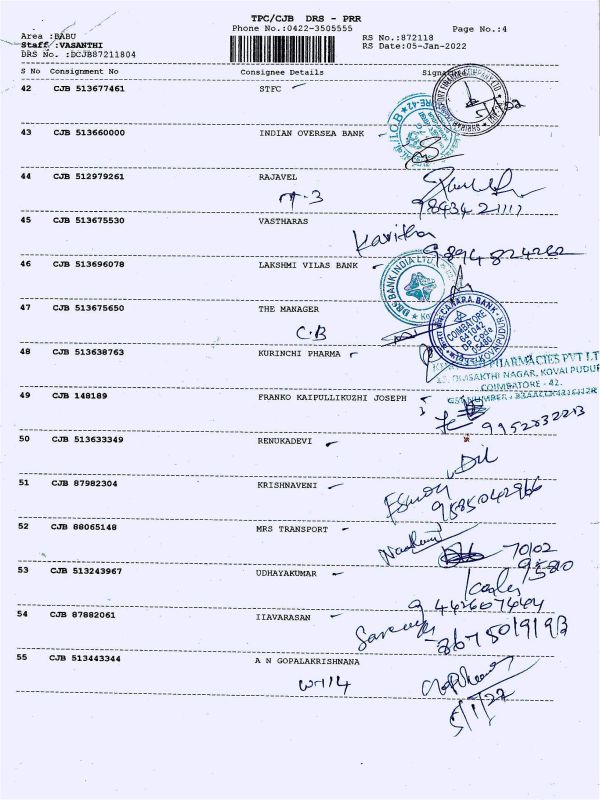 TPC/CJB DRS - PRR
Phone No.:0422-3505555
Page No.:4
Area :BABU
RS No.:872118
Staff :VASANTHI
RS Date:05-Jan-2022
DRS No. :DCJB87211804
S No Consignment No Consignee Details Signature
42 CJB 513677461 STFC
43 CJB 513660000 INDIAN OVERSEA BANK
44 CJB 512979261 RAJAVEL
98434 21111
45 CJB 513675530 VASTHARAS
Kavitha 98945 824282
46 CJB 513696078 LAKSHMI VILAS BANK
DBS BANK INDIA LTD.
47 CJB 513675650 THE MANAGER
C.B
CANARA BANK
COIMBATORE
641042
DP Code
48 CJB 513638763 KURINCHI PHARMA
PHARMACIES PVT LT
SAKTHI NAGAR, KOVAI PUDUR
COIMBATORE - 42.
49 CJB 148189 FRANKO KAIPULLIKUZHI JOSEPH
9952832213
50 CJB 513633349 RENUKADEVI
51 CJB 87982304 KRISHNAVENI
9585042966
52 CJB 88065148 MRS TRANSPORT
70102
95810
53 CJB 513243967 UDHAYAKUMAR
9442607444
54 CJB 87882061 IIAVARASAN
8675019193
55 CJB 513443344 A N GOPALAKRISHNANA
5/1/22